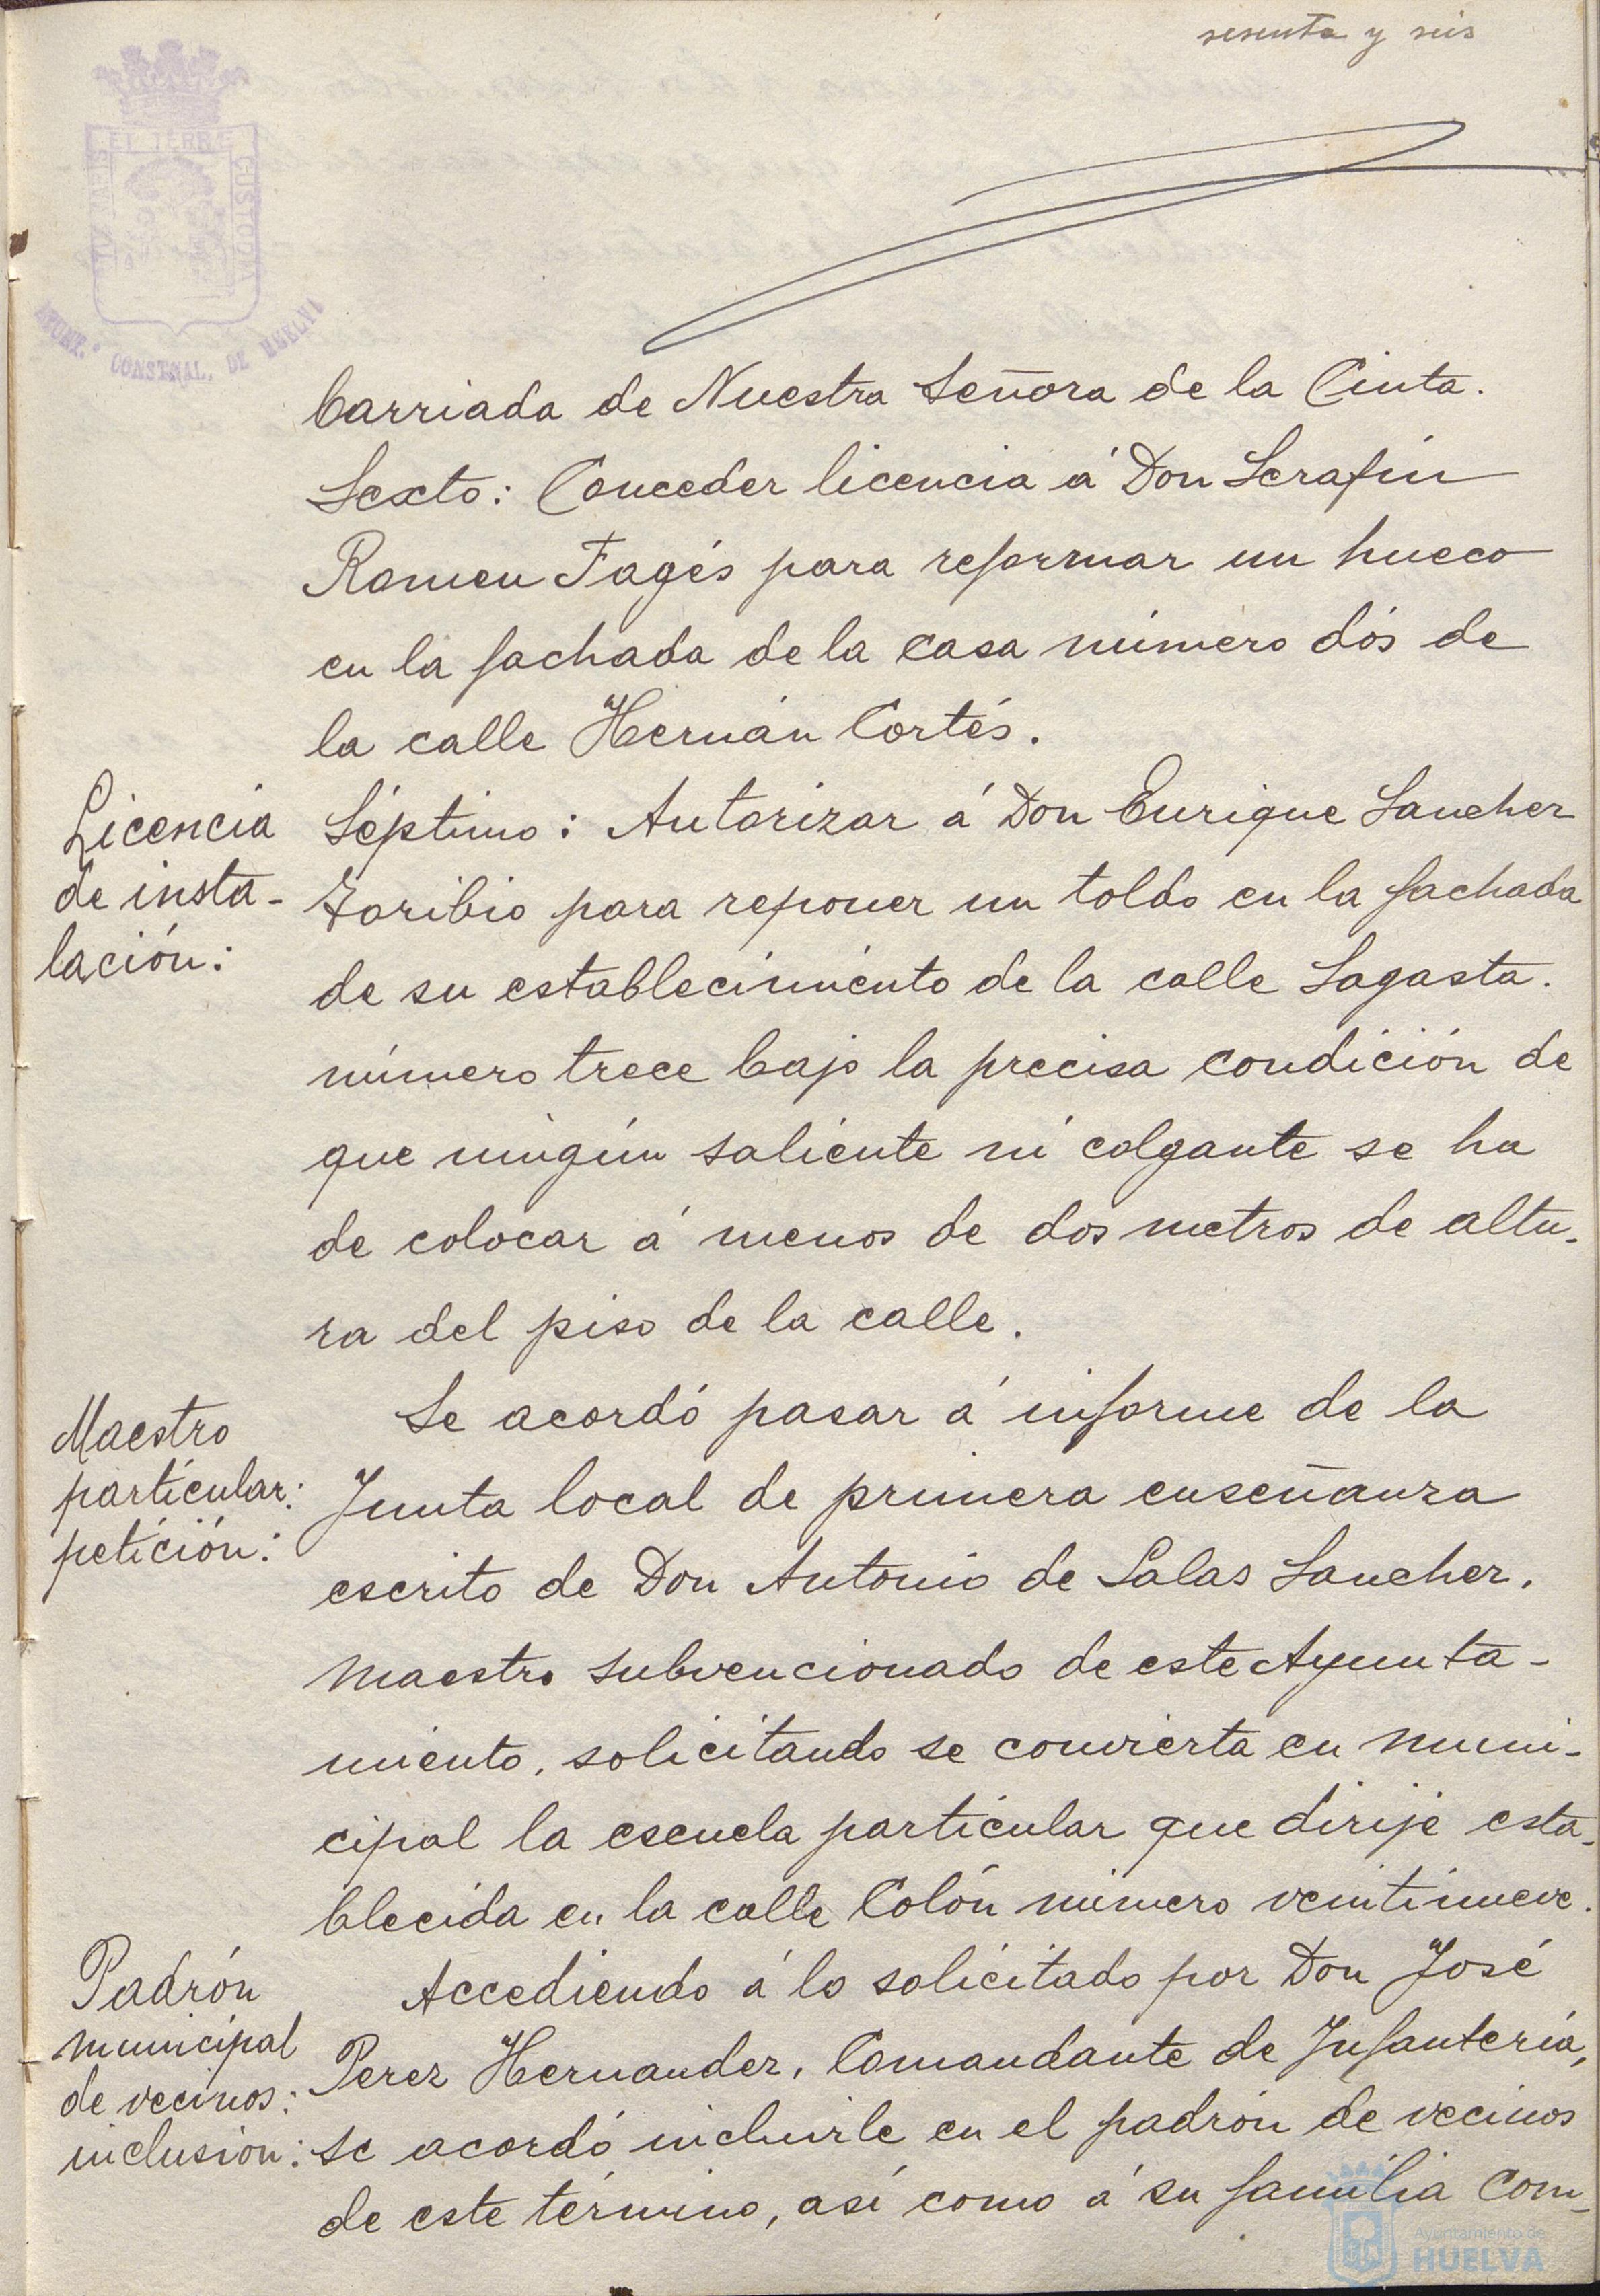 sesenta y seis
PORTUS MARIS ET TERRE CUSTODIA
AYUNT.º CONSTNAL. DE HUELVA
barriada de Nuestra Señora de la Cinta.
Sexto: Conceder licencia á Don Serafin
Romeu Fagés para reformar un hueco
en la fachada de la casa número dós de
la calle Hernán Cortés.
Licencia
de insta-
lación:
Séptimo: Autorizar á Don Enrique Sanchez
Toribio para reponer un toldo en la fachada
de su establecimiento de la calle Sagasta.
número trece bajo la precisa condición de
que ningún saliente ni colgante se ha
de colocar á menos de dos metros de altu-
ra del piso de la calle.
Maestro
particular:
petición:
Se acordó pasar á informe de la
Junta local de primera enseñanza
escrito de Don Antonio de Salas Sanchez,
maestro subvencionado de este Ayunta-
miento, solicitando se convierta en muni-
cipal la escuela particular que dirije esta-
blecida en la calle Colón número veintinueve.
Padrón
municipal
de vecinos:
inclusión:
Accediendo á lo solicitado por Don José
Perez Hernandez, Comandante de Infantería,
se acordó incluirle en el padrón de vecinos
de este término, así como á su familia com-
Ayuntamiento de
HUELVA